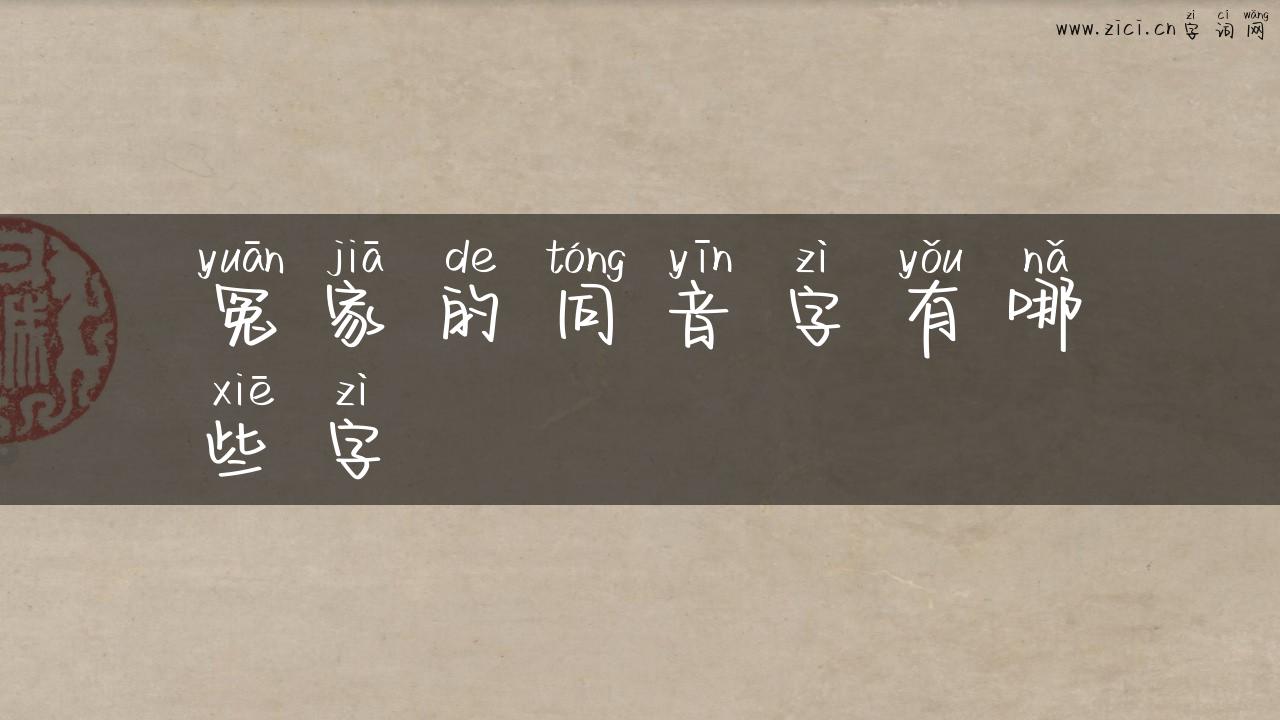 zì cí wǎng
www.zici.cn 字词网
yuān jiā de tóng yīn zì yǒu nǎ
冤家的同音字有哪
xiē zì
些字